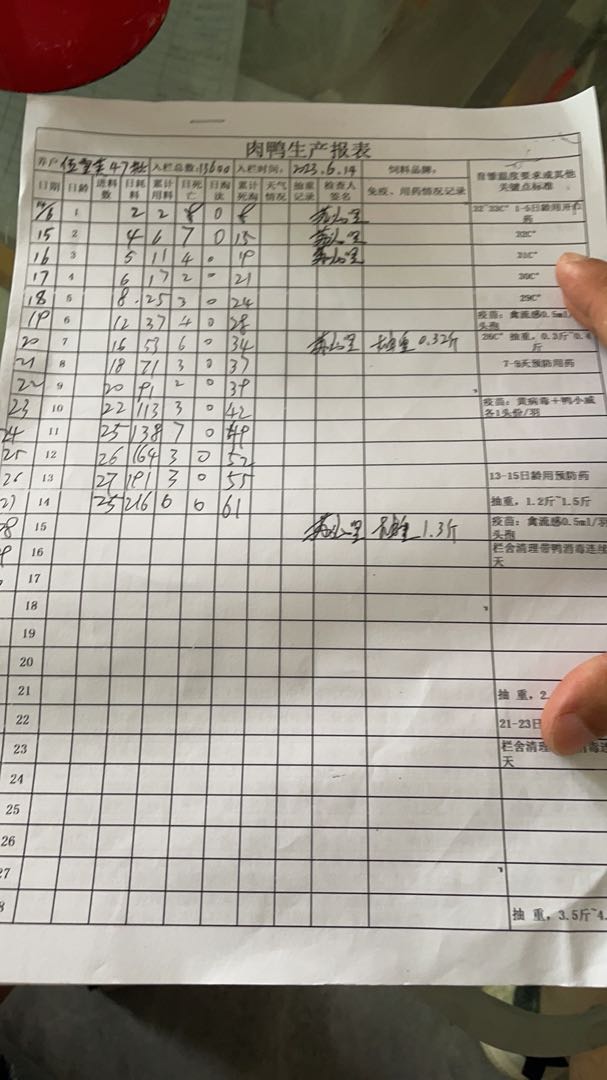 肉鸭生产报表
养户 47批 入栏总数:13600 入栏时间: 2023.6.14 饲料品牌:
日期 日龄 进料数 日耗料 累计用料 日死亡 日淘汰 累计死淘 天气情况 抽重记录 检查人签名 免疫、用药情况记录 育雏温度要求或其他关键点标准
14/6 1 2 2 8 0 8 32~33C° 1-5日龄用开口药
15 2 4 6 7 0 15 32C°
16 3 5 11 4 0 19 31C°
17 4 6 17 2 0 21 30C°
18 5 8 25 3 0 24 29C°
19 6 12 37 4 0 28 疫苗：禽流感0.5ml/头孢
20 7 16 53 6 0 34 抽重 0.32斤 28C° 抽重，0.3斤~0.4斤
21 8 18 71 3 0 37 7-9天预防用药
22 9 20 91 2 0 39
23 10 22 113 3 0 42 疫苗：黄病毒+鸭小减各1头份/羽
24 11 25 138 7 0 49
25 12 26 164 3 0 52
26 13 27 191 3 0 55 13-15日龄用预防药
27 14 25 216 6 0 61 抽重，1.2斤~1.5斤
28 15 1.3斤 疫苗：禽流感0.5ml/羽头孢
16 栏舍清理带鸭消毒连续天
17
18
19
20
21 抽 重，2.
22 21-23日
23 栏舍清理 消毒连 天
24
25
26
27
8 抽 重，3.5斤~4.